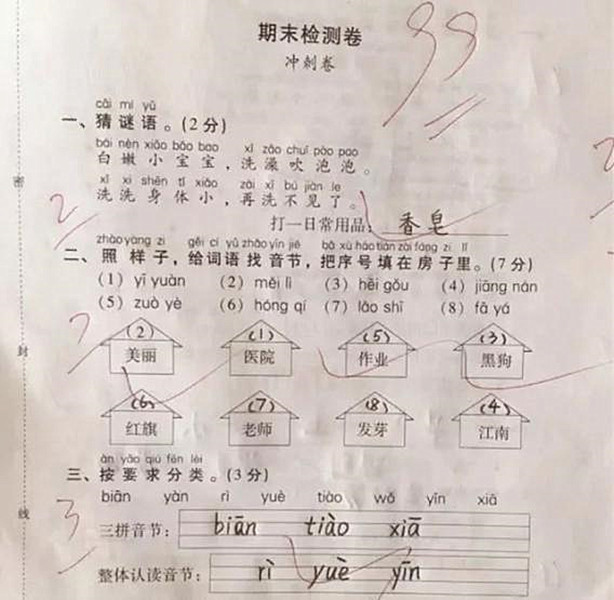 期末检测卷
99
冲刺卷
cāi mí yǔ
一、猜谜语。(2分)
bái nèn xiǎo bǎo bao xǐ zǎo chuī pào pao
白嫩小宝宝，洗澡吹泡泡。
xǐ xi shēn tǐ xiǎo zài xǐ bú jiàn le
洗洗身体小，再洗不见了。
2
打一日常用品：香皂
zhào yàng zi gěi cí yǔ zhǎo yīn jié bǎ xù hào tián zài fáng zi lǐ
二、照样子，给词语找音节，把序号填在房子里。(7分)
(1) yī yuàn (2) měi lì (3) hēi gǒu (4) jiāng nán
(5) zuò yè (6) hóng qí (7) lǎo shī (8) fā yá
7
(2) (1) (5) (3)
美丽 医院 作业 黑狗
(6) (7) (8) (4)
红旗 老师 发芽 江南
àn yāo qiú fēn lèi
三、按要求分类。(3分)
biān yàn rì yuè tiào wǒ yīn xiā
3
三拼音节： biān tiào xiā
整体认读音节： rì yuè yīn
密
封
线